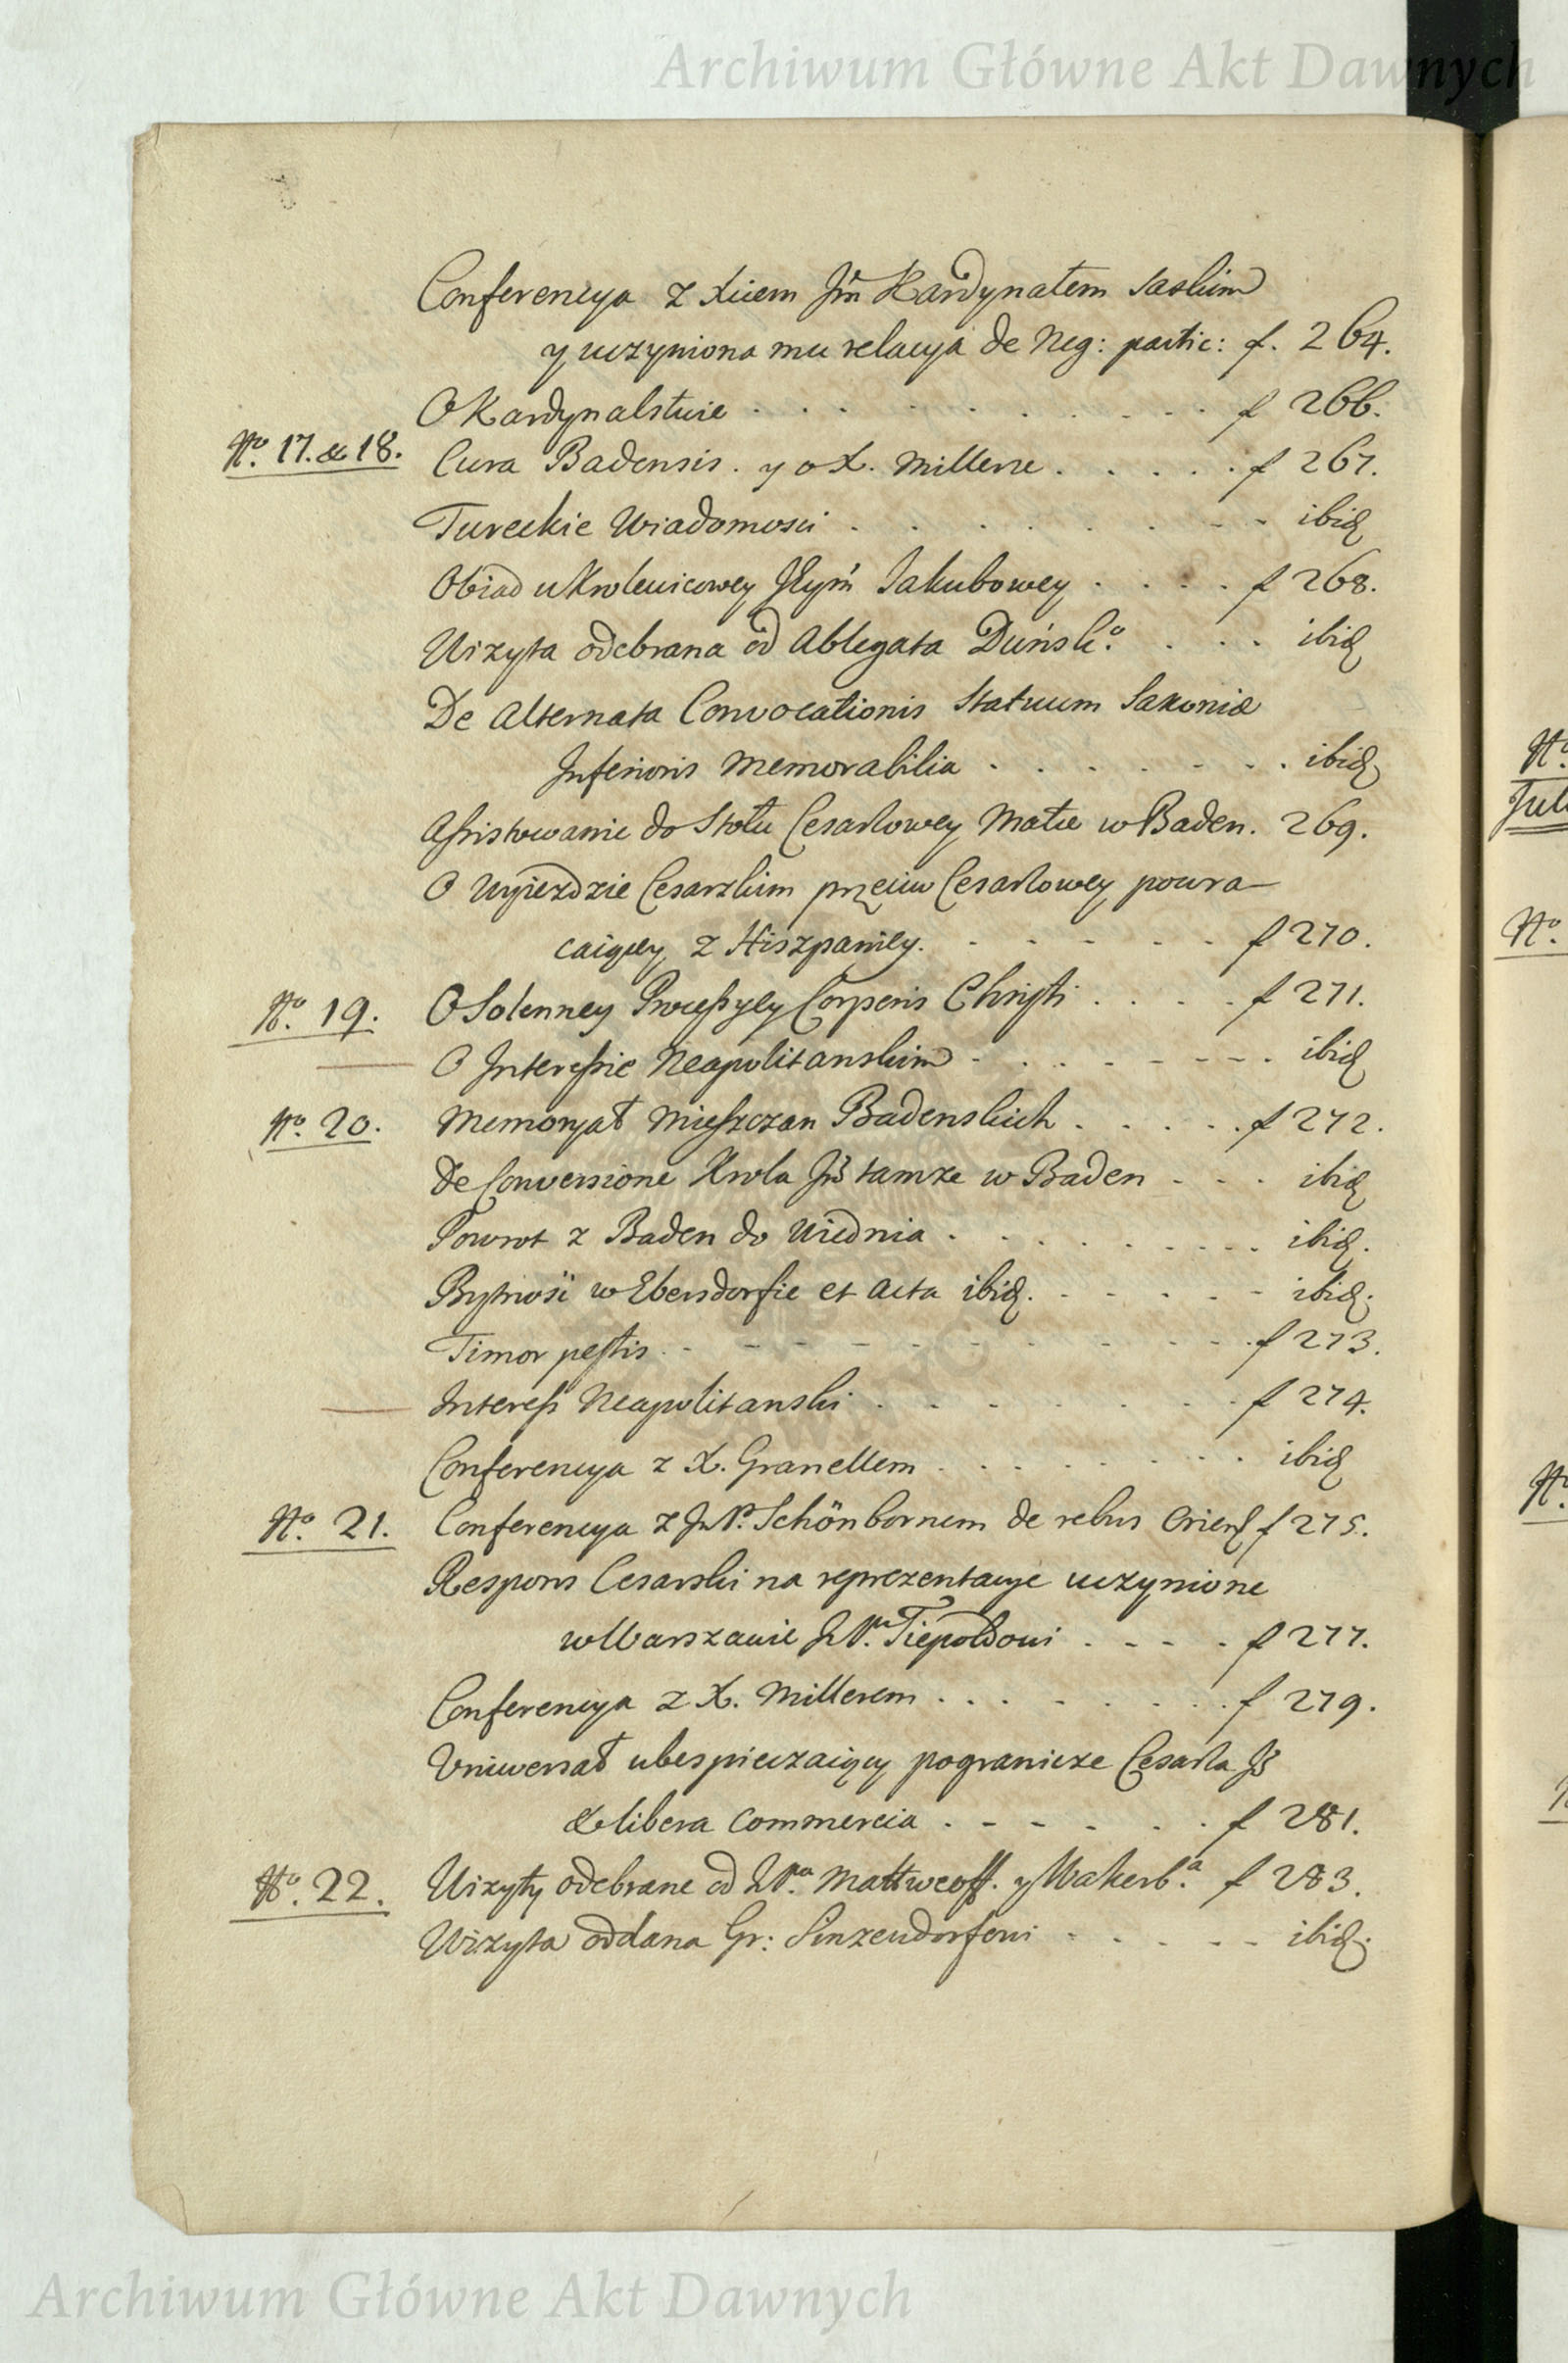 Archiwum Główne Akt Dawnych
Conferencya z Xciem Jm̃ Kardynałem Saskim
y uczyniona mu relacya de Neg: partic: f. 264.
O Kardynalstwie . . . . . . . . . f 266.
No. 17. & 18. Cura Badensis. y o X. Millerze . . . . . f 267.
Tureckie Wiadomosci . . . . . . . - - ibid
Obiad u Krolewicowey JEym̃ Jakubowey . . . . f 268.
Wizyta odebrana od Ablegata Duńsk.o . . . ibid
De Alternata Convocationis Statuum Saxoniæ
Inferioris Memorabilia . . . . . . . ibid
Assistowanie do Stołu Cesarzowey Matce w Baden. 269.
O Wyjezdzie Cesarzkim przeciw Cesarzowey powra-
caiącey z Hiszpaniey. . - - - - - f 270.
No. 19. O Solenney Processyey Corporis Christi . . . . f 271.
O Interessie Neapolitanskim - . . . - - - . ibid
No. 20. Memoryał Mieszczan Badenskich . . . . . f 272.
De Conversione Krola Jmści tamze w Baden - - . ibid
Powrot z Baden do Wiednia . . . . . . . . ibid.
Bytność w Ebersdorfie et Acta ibid. - - - - - ibid.
Timor pestis . - - - - - - - - - f 273.
Interess Neapolitanski . . . . . . . f 274.
Conferencya z X. Granellem . . . . . . . . ibid
No. 21. Conferencya z JP. Schönbornem de rebus Orient f 275.
Respons Cesarski na reprezentacye uczynione
w Warszawie JP. Tiepoldowi . - - - f 277.
Conferencya z X. Millerem . . . . . . . . f 279.
Uniwersał ubespieczaiący pogranicze Cesarza Jmści
& libera Commercia . - - - . . . f 281.
No. 22. Wizyty odebrane od JP.na Mattweoff. y Wakerb.a f 283.
Wizyta oddana Gr: Sinzendorfowi . . . - - ibid.
No
Jul
No
No
Archiwum Główne Akt Dawnych